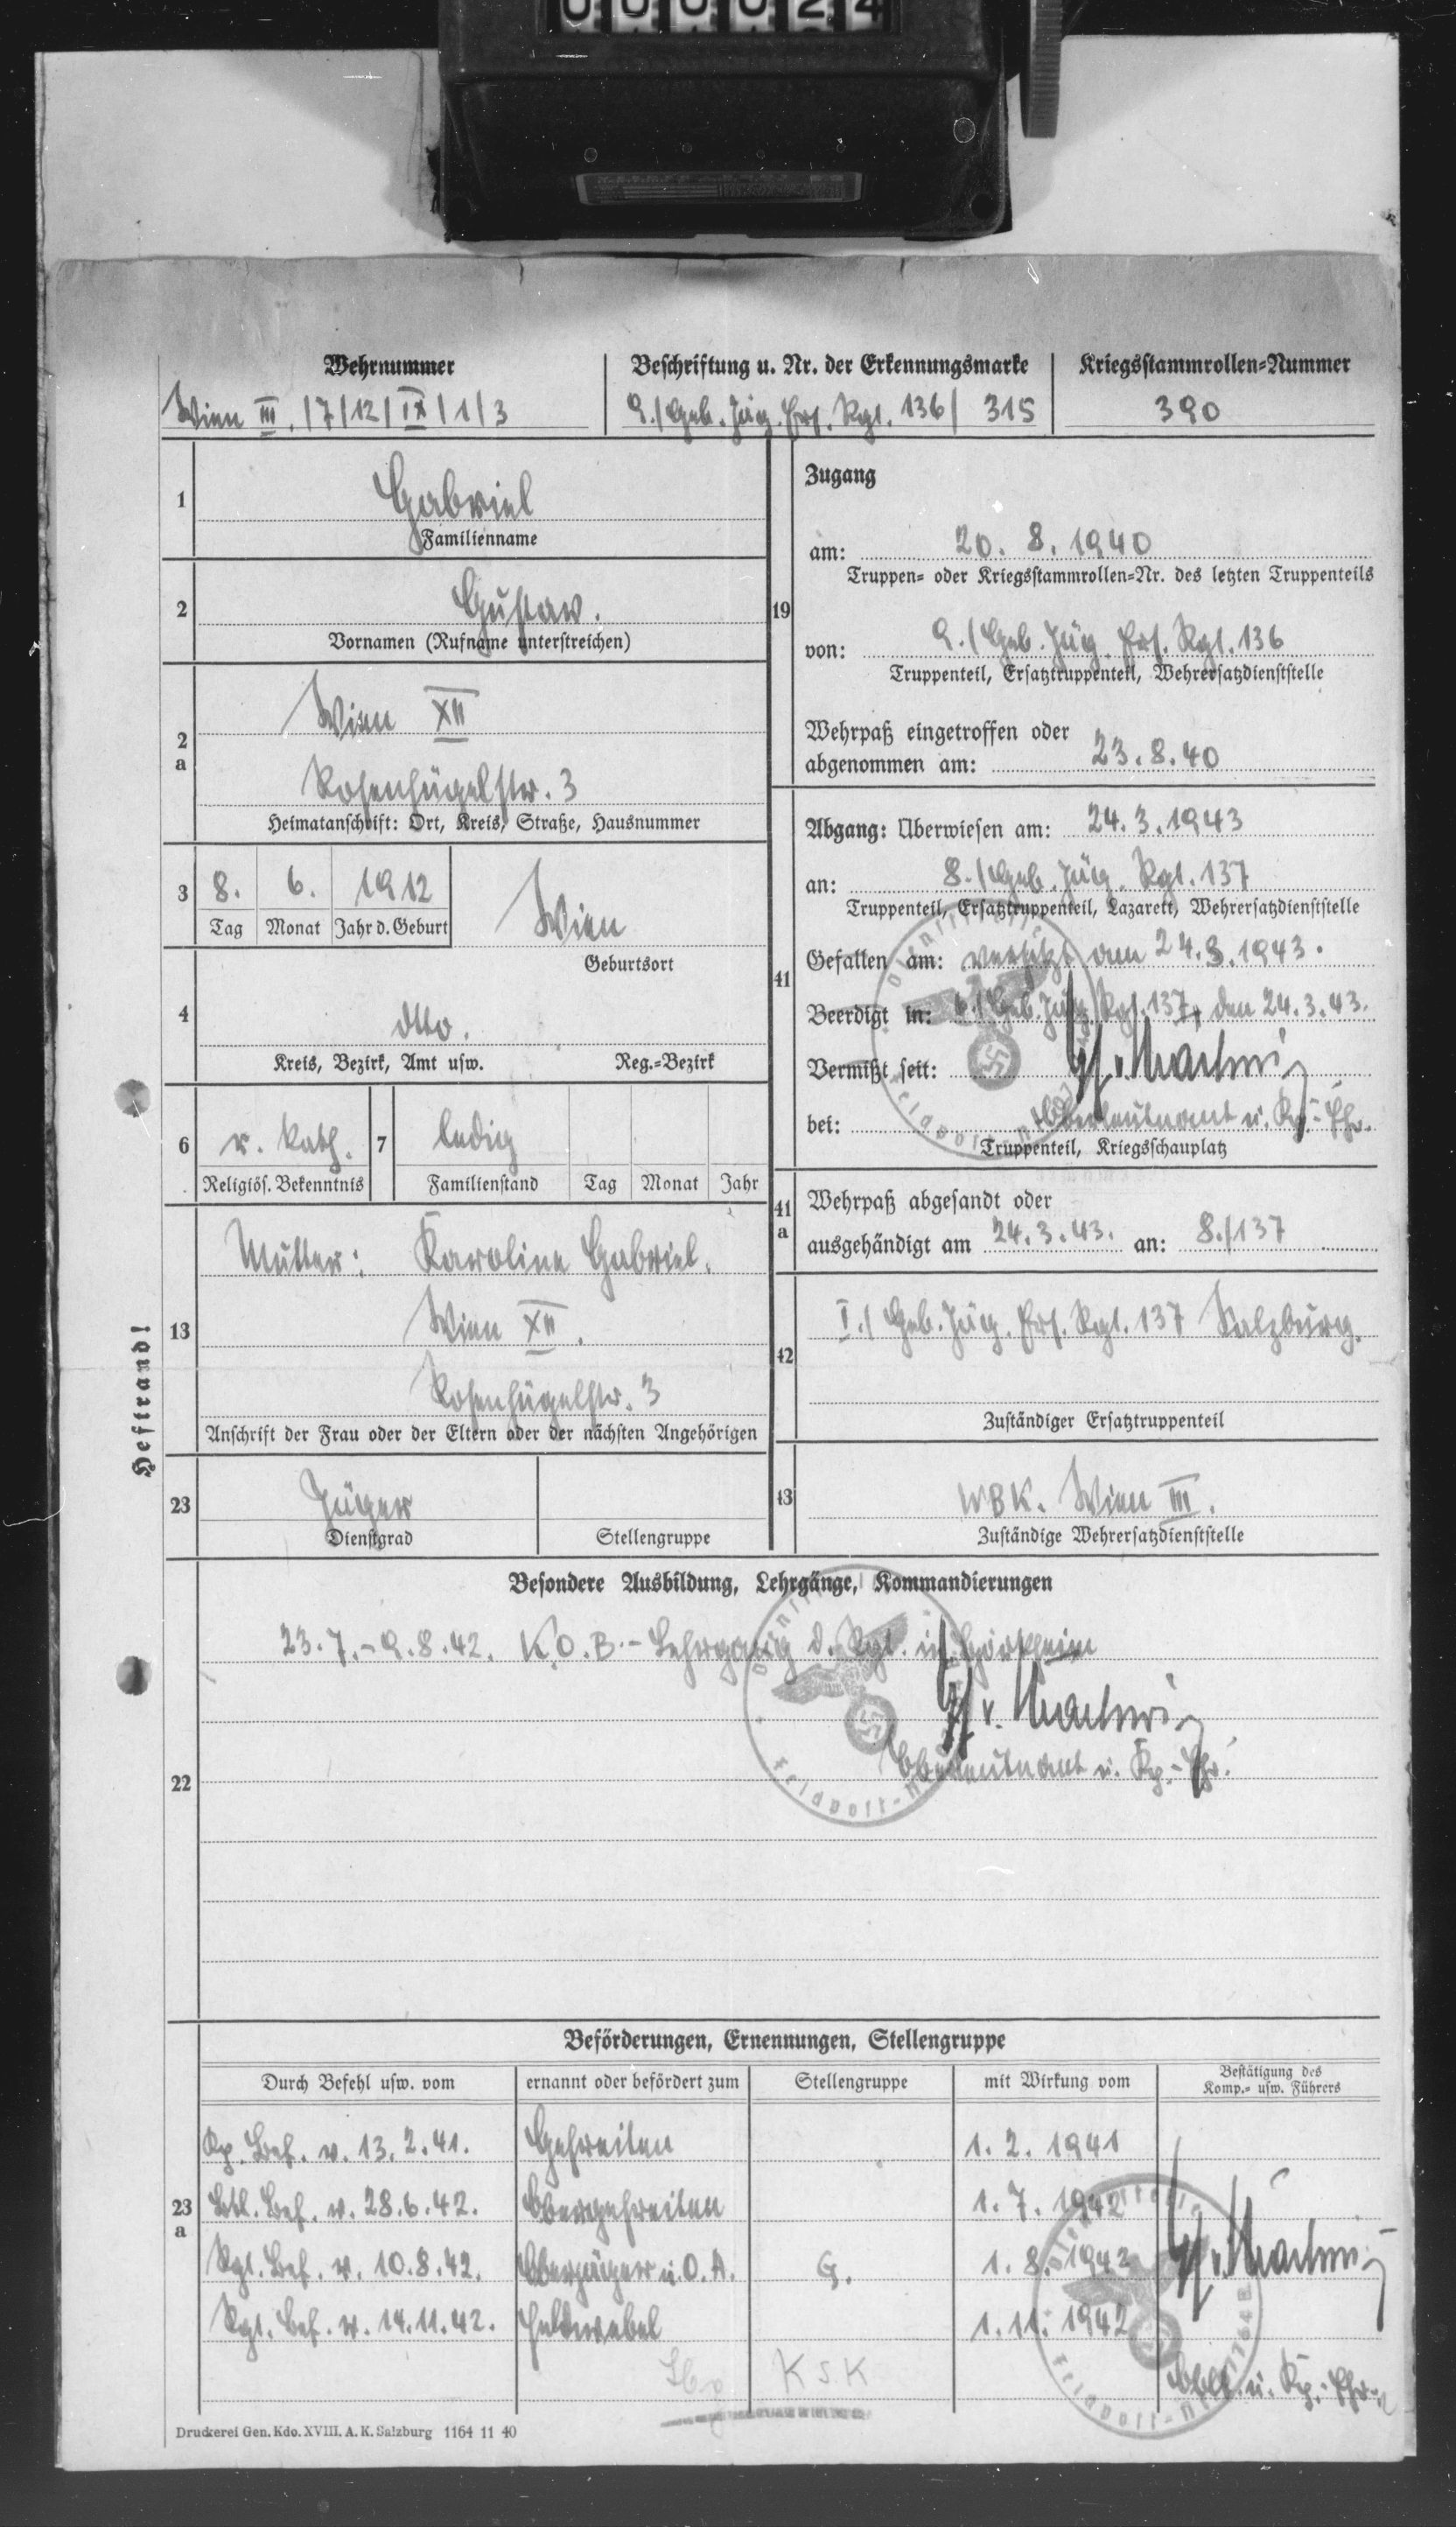 000024
Wehrnummer
Wien III. /7/12/IX/1/3
Beschriftung u. Nr. der Erkennungsmarke
9./Geb. Jäg. Ers. Rgt. 136/ 315
Kriegsstammrollen-Nummer
390
1
Gabriel
Familienname
2
Gustav.
Vornamen (Rufname unterstreichen)
2a
Wien XII
Rosenhügelstr. 3
Heimatanschrift: Ort, Kreis, Straße, Hausnummer
3
8. 6. 1912 Wien
Tag Monat Jahr d. Geburt
Geburtsort
4
dtto.
Kreis, Bezirk, Amt usw. Reg.-Bezirk
6
r. kath.
Religiös. Bekenntnis
7
ledig
Familienstand Tag Monat Jahr
13
Mutter: Karoline Gabriel.
Wien XII.
Rosenhügelstr. 3
Anschrift der Frau oder der Eltern oder der nächsten Angehörigen
23
Jäger
Dienstgrad Stellengruppe
Heftrand!
19
Zugang
am: 20. 8. 1940
Truppen- oder Kriegsstammrollen-Nr. des letzten Truppenteils
von: 9./Geb. Jäg. Ers. Rgt. 136
Truppenteil, Ersatztruppenteil, Wehrersatzdienststelle
Wehrpaß eingetroffen oder
abgenommen am: 23. 8. 40
41
Abgang: Überwiesen am: 24. 3. 1943
an: 8./Geb. Jäg. Rgt. 137
Truppenteil, Ersatztruppenteil, Lazarett, Wehrersatzdienststelle
Gefallen am: versetzt am 24. 3. 1943.
Beerdigt in: Geb. Jäg. Rgt. 137, den 24. 3. 43.
Vermißt seit:
bei: Oberleutnant u. Kp.-Fhr.
Truppenteil, Kriegsschauplatz
41a
Wehrpaß abgesandt oder
ausgehändigt am 24. 3. 43. an: 8./137
42
I./Geb. Jäg. Ers. Rgt. 137 Salzburg.
Zuständiger Ersatztruppenteil
43
WBK. Wien III.
Zuständige Wehrersatzdienststelle
22
Besondere Ausbildung, Lehrgänge, Kommandierungen
23. 7. - 9. 8. 42. K.O.B.-Lehrgang d. Rgt. in
Oberleutnant u. Kp.-Fhr.
Dienststelle
Feldpost-N
23a
Beförderungen, Ernennungen, Stellengruppe
Durch Befehl usw. vom ernannt oder befördert zum Stellengruppe mit Wirkung vom Bestätigung des Komp.- usw. Führers
Kp. Bef. v. 13. 2. 41. Gefreiten 1. 2. 1941
Btl. Bef. v. 28. 6. 42. Obergefreiten 1. 7. 1942
Rgt. Bef. v. 10. 8. 42. Oberjäger u. O. A. G. 1. 8. 1942
Rgt. Bef. v. 14. 11. 42. Feldwebel 1. 11. 1942
KSK
Oblt. u. Kp.-Fhr.
Druckerei Gen. Kdo. XVIII. A. K. Salzburg 1164 11 40